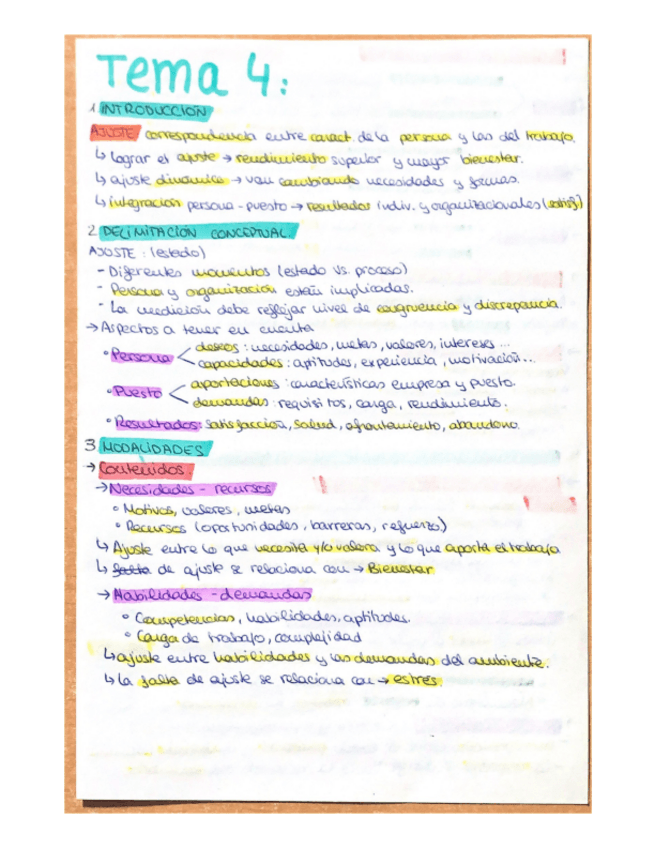 Tema 4:
1 INTRODUCCIÓN
AJUSTE correspondencia entre caract. de la persona y las del trabajo.
↳ lograr el ajuste → rendimiento superior y mayor bienestar.
↳ ajuste dinámico → van cambiando necesidades y formas.
↳ integración persona - puesto → resultados indiv. y organizacionales (satisf)
2 DELIMITACIÓN CONCEPTUAL.
AJUSTE : (estado)
- Diferentes momentos (estado vs. proceso)
- Persona y organización están implicadas.
- La medición debe reflejar nivel de congruencia y discrepancia.
→ Aspectos a tener en cuenta
• Persona < deseos : necesidades, metas, valores, intereses ...
capacidades : aptitudes, experiencia, motivación...
• Puesto < aportaciones : características empresa y puesto.
demandas : requisitos, carga, rendimiento.
• Resultados: satisfacción, salud, afrontamiento, abandono.
3 MODALIDADES
→ Contenidos.
→ Necesidades - recursos
° Motivos, valores, metas
° Recursos (oportunidades, barreras, refuerzo)
↳ Ajuste entre lo que necesita y/o valora y lo que aporta el trabajo
↳ falta de ajuste se relaciona con → Bienestar
→ Habilidades - demandas
° Competencias, habilidades, aptitudes.
° Carga de trabajo, complejidad
↳ ajuste entre habilidades y las demandas del ambiente.
↳ La falta de ajuste se relaciona con → estrés.